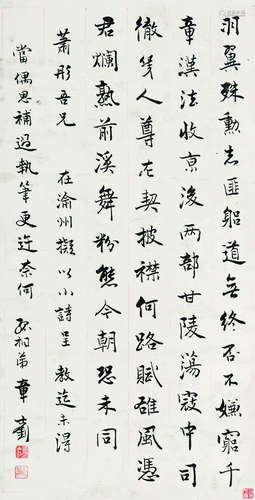 羽翼殊勳志匪躬道無終否不嫌窮千
章漢法收京後兩部甘陵蕩寇中司
徹箋人尊左契披襟何路賦雄風憑
君爛熟前溪舞粉熊今朝恐未同
蕭彤吾兄 在渝州擬以小詩呈教迄未得
當偶思補過執筆更近奈何 弟章